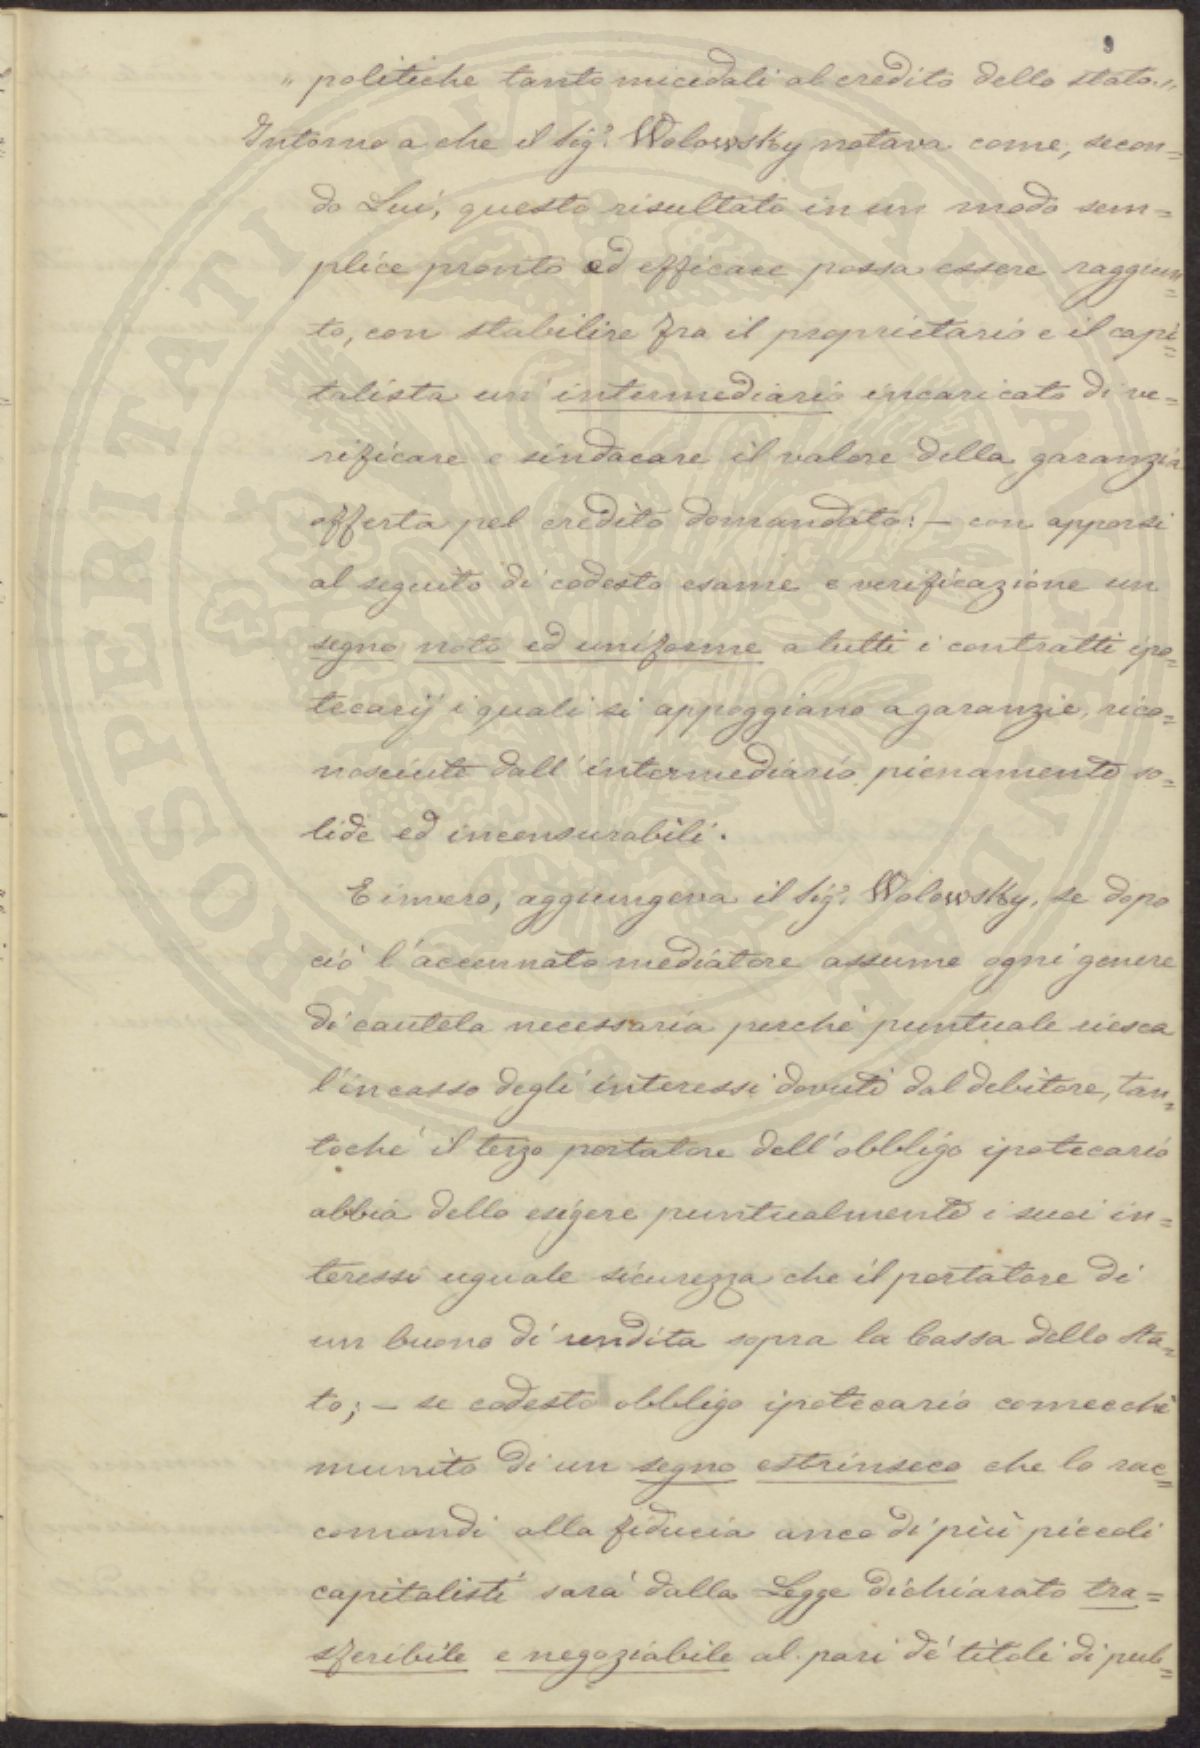 9
„ politiche tanto micidali al credito dello stato.„
Intorno a che il Sig.r Wolowsky notava come, secon=
do Lui, questo risultato in un modo sem=
plice pronto ed efficace possa essere raggiun=
to, con stabilire fra il proprietario e il capi=
talista un' intermediario incaricato di ve=
rificare e sindacare il valore della garanzia
offerta pel credito domandato: — con apporsi
al seguito di codesto esame e verificazione un
segno noto ed uniforme a tutti i contratti ipo=
tecarij i quali si appoggiano a garanzie, rico=
nosciute dall' intermediario pienamente so=
lide ed incensurabili.
E invero, aggiungeva il Sig.r Wolowsky, se dopo
ciò l'accennato mediatore assume ogni genere
di cautela necessaria perchè puntuale riesca
l'incasso degli interessi dovuti dal debitore, tan=
tochè il terzo portatore dell'obbligo ipotecario
abbia dello esigere puntualmente i suoi in=
teressi uguale sicurezza che il portatore di
un buono di rendita sopra la Cassa dello Sta=
to; — se codesto obbligo ipotecario comecchè
munito di un segno estrinseco che lo rac=
comandi alla fiducia anco di più piccoli
capitalisti sarà dalla Legge dichiarato tra=
sferibile e negoziabile al pari de' titoli di pub=
PROSPERITATI PUBLICAE AUGENDAE